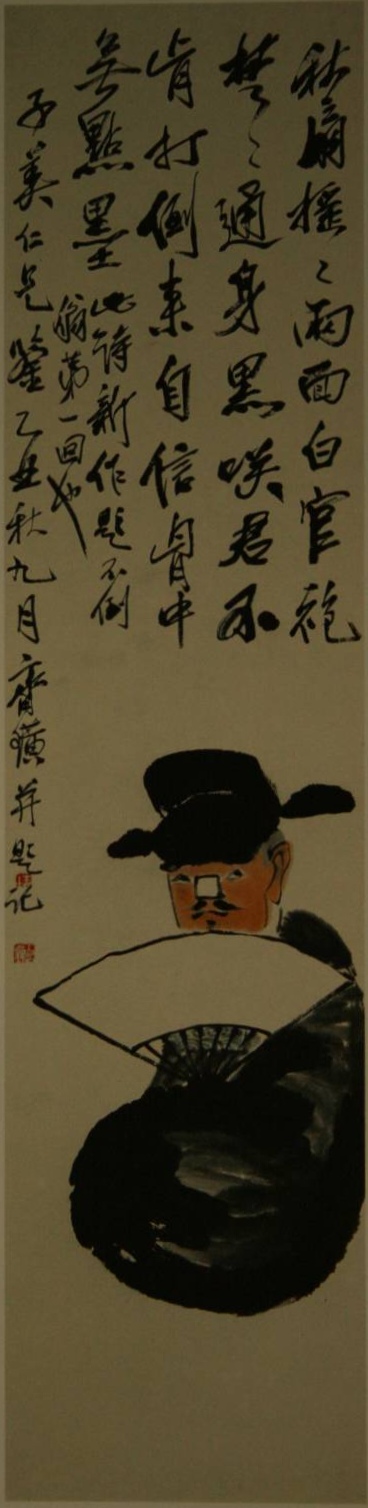 秋扇摇〻兩面白官袍
楚〻通身黑咲君不
肯打倒来自信胷中
無點墨此詩新作題不倒
翁第一回也
子美仁兄鑒乙丑秋九月齊璜并題記